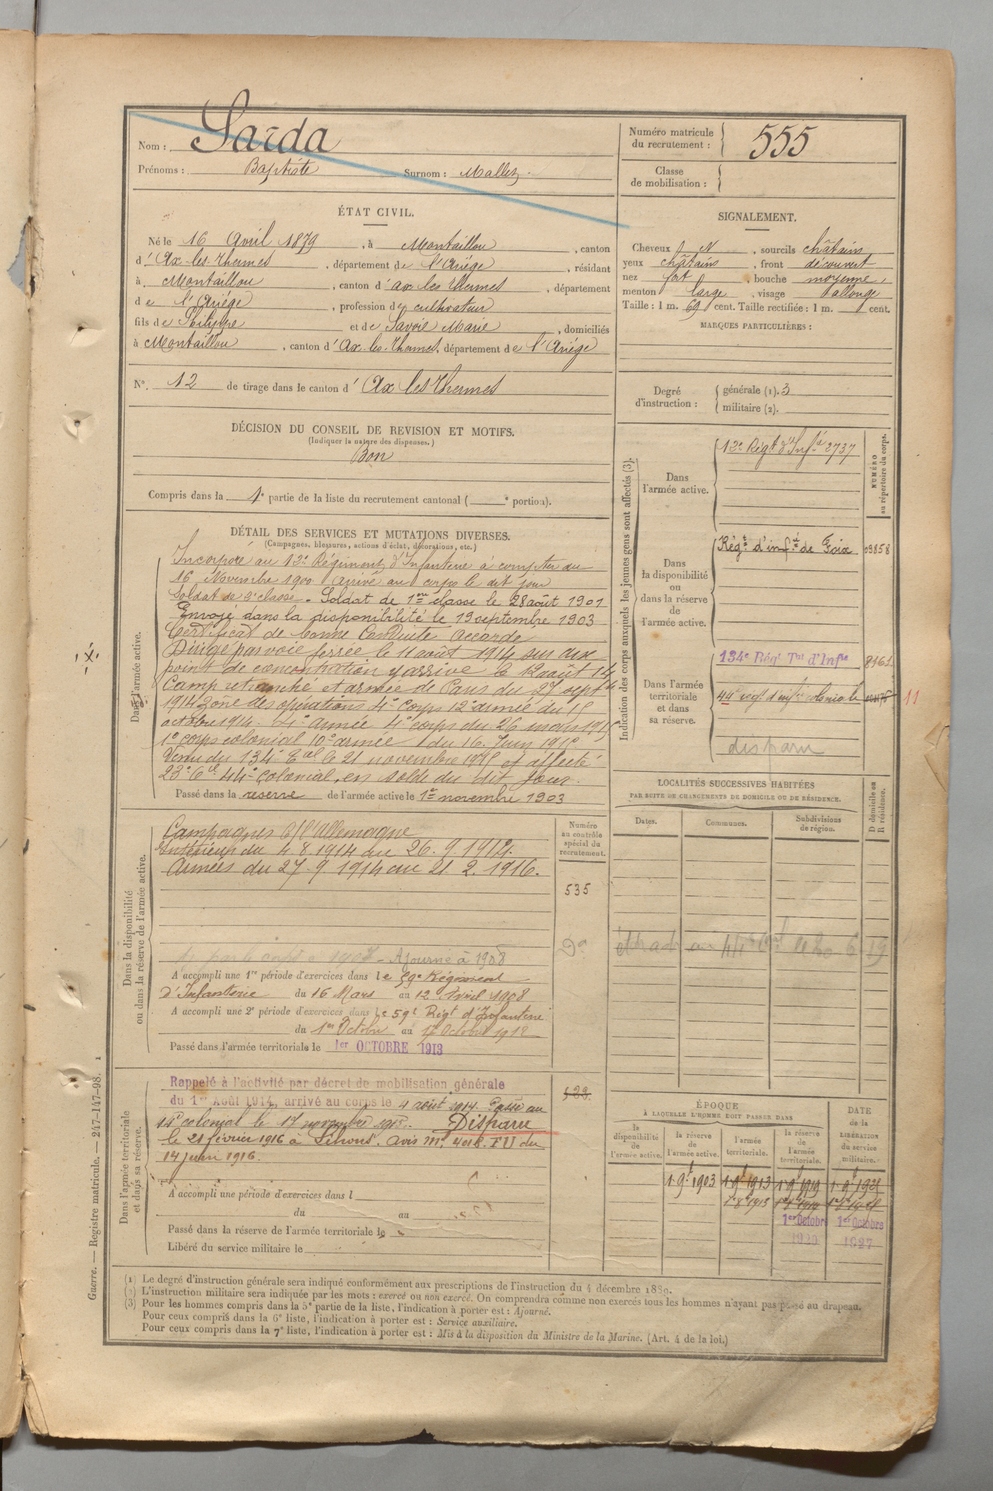 Nom : Sarda
Prénoms : Baptiste Surnom : Mallez
Numéro matricule du recrutement : 555
Classe de mobilisation :
ÉTAT CIVIL.
Né le 16 Avril 1879, à Montaillou, canton
d'Ax-les-Thermes, département de l'Ariège, résidant
à Montaillou, canton d'Ax les Thermes, département
de l'Ariège, profession de cultivateur
fils de et de Savoie Marie, domiciliés
à Montaillou, canton d'Ax-les-Thermes, département de l'Ariège
N°. 12 de tirage dans le canton d'Ax les Thermes
SIGNALEMENT.
Cheveux N, sourcils châtain
yeux châtains, front découvert
nez fort, bouche moyenne,
menton large, visage allongé
Taille : 1 m. 69 cent. Taille rectifiée : 1 m. cent.
MARQUES PARTICULIÈRES :
Degré d'instruction : générale (1). 3
militaire (2).
DÉCISION DU CONSEIL DE REVISION ET MOTIFS.
(Indiquer la nature des dispenses.)
Bon
Compris dans la 1e partie de la liste du recrutement cantonal ( e portion).
DÉTAIL DES SERVICES ET MUTATIONS DIVERSES.
(Campagnes, blessures, actions d'éclat, décorations, etc.)
Dans l'armée active.
Incorporé au 12e Régiment d'Infanterie à compter du
16 Novembre 1900. Arrivé au corps le dit jour
Soldat de 2e classe. Soldat de 1ere classe le 28 août 1901
Envoyé dans la disponibilité le 19 septembre 1903
Certificat de bonne Conduite accordé
Dirigé par voie ferrée le 11 août 1914 sur aux
point de concentration y arrive le 12 août 14
Camp retranché et armée de Paris du 27 septb
1914 Zone des opérations 4e corps 12e armée du 15
octobre 1914. 4e armée 4e corps du 26 mars 1915
1e corps colonial 10e armée du 16 Juin 1915
Venu du 134e Eal le 21 novembre 1915 et affecté
23e Cie 44e colonial, en solde du dit jour.
Passé dans la réserve de l'armée active le 1er novembre 1903
Dans la disponibilité ou dans la réserve de l'armée active.
Campagnes C/l'Allemagne
Intérieur du 4.8.1914 au 26.9.1914.
Armées du 27.9.1914 au 21.2.1916.
Ajourné à 1908
A accompli une 1re période d'exercices dans le 59e Régiment
d'Infanterie du 16 Mars au 12 Avril 1908
A accompli une 2e période d'exercices dans le 59e Régt d'Infanterie
du 1er Octobre au 17 Octobre 1912
Passé dans l'armée territoriale le 1er OCTOBRE 1913
Numéro au contrôle spécial du recrutement.
535
Dans l'armée territoriale et dans sa réserve.
Rappelé à l'activité par décret de mobilisation générale
du 1er Août 1914, arrivé au corps le 4 août 1914. Passé au
44e colonial le 17 novembre 1915. Disparu
le 21 février 1916 à Lihons. Avis Mle du
14 juin 1916.
A accompli une période d'exercices dans l
du au
Passé dans la réserve de l'armée territoriale le
Libéré du service militaire le
Indication des corps auxquels les jeunes gens sont affectés (3).
NUMÉRO au répertoire du corps.
Dans l'armée active. 12e Régt d'Infie 2737
Dans la disponibilité ou dans la réserve de l'armée active. Régt d'infie de Foix 03858
Dans l'armée territoriale et dans sa réserve. 134e Régt Tal d'Infie
44e regt d'infie colonial
11
disparu
LOCALITÉS SUCCESSIVES HABITÉES
PAR SUITE DE CHANGEMENTS DE DOMICILE OU DE RÉSIDENCE.
Dates. Communes. Subdivisions de région. D domicile ou R résidence.
ÉPOQUE
À LAQUELLE L'HOMME DOIT PASSER DANS
DATE de la LIBÉRATION du service militaire.
la disponibilité de l'armée active. la réserve de l'armée active. l'armée territoriale. la réserve de l'armée territoriale.
1.9bre 1903 1.9bre 1913 1.9bre 1919 1.9bre 1925
1er Octobre 1er Octobre
1920 1927
Guerre. — Registre matricule. — 247-147-98. 1
(1) Le degré d'instruction générale sera indiqué conformément aux prescriptions de l'instruction du 4 décembre 1889.
(2) L'instruction militaire sera indiquée par les mots : exercé ou non exercé. On comprendra comme non exercés tous les hommes n'ayant pas passé au drapeau.
(3) Pour les hommes compris dans la 5e partie de la liste, l'indication à porter est : Ajourné.
Pour ceux compris dans la 6e liste, l'indication à porter est : Service auxiliaire.
Pour ceux compris dans la 7e liste, l'indication à porter est : Mis à la disposition du Ministre de la Marine. (Art. 4 de la loi.)